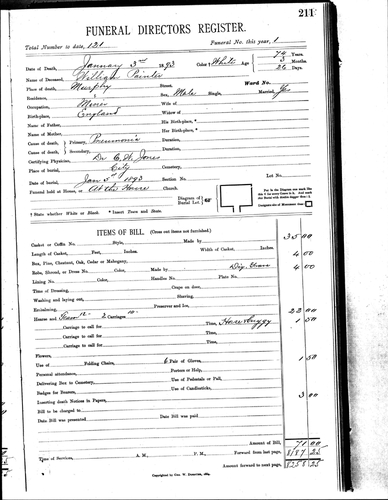 211
FUNERAL DIRECTORS REGISTER.
Total Number to date, 121 Funeral No. this year, 1
Date of Death, January 3rd 1893 Color † White Age 74 Years.
3 Months.
26 Days.
Name of Deceased, William Painter
Place of death, Murphy Street, Ward No.
Residence, Sex, Male Single, Married, Yes
Occupation, Miner Wife of
Birthplace, England Widow of
Name of Father, His Birth-place, *
Name of Mother, Her Birth-place, *
Cause of death, Primary, Pneumonia Duration,
Cause of death, Secondary, Duration,
Certifying Physician, Dr C. W. Jones
Place of burial, City Cemetery,
Date of burial, Jan 5th 1893 Section No. Lot No.
Funeral held at Home, or At the House Church.
Diagram of Burial Lot.
† State whether White or Black. * Insert Town and State.
ITEMS OF BILL. (Cross out items not furnished.)
Casket or Coffin No. Style, Made by 35 00
Length of Casket, Feet, Inches. Width of Casket, Inches.
Box, Pine, Chestnut, Oak, Cedar or Mahogany. 4 00
Robe, Shroud, or Dress No. Color, Made by Dig. Grave 4 00
Lining No. Color, Handles No. Plate No.
Time of Dressing, Crape on door,
Washing and laying out, Shaving,
Embalming, Preserver and Ice,
Hearse and 12- 2 Carriages 10- 22 00
Carriage to call for Time, Buggy 1 50
Carriage to call for Time,
Carriage to call for Time,
Carriage to call for Time,
Flowers,
Use of Folding Chairs, 6 Pair of Gloves, 1 50
Personal attendance, Porters or Help,
Delivering Box to Cemetery, Use of Pedestals or Pall,
Badges for Bearers, Use of Candlesticks,
Inserting death Notices in Papers, 3 00
Bill to be charged to
Date Bill was presented Date Bill was paid
Amount of Bill, 71 00
Time of Services, A. M., P. M., Forward from last page, 8187 25
Amount forward to next page, 8258 25